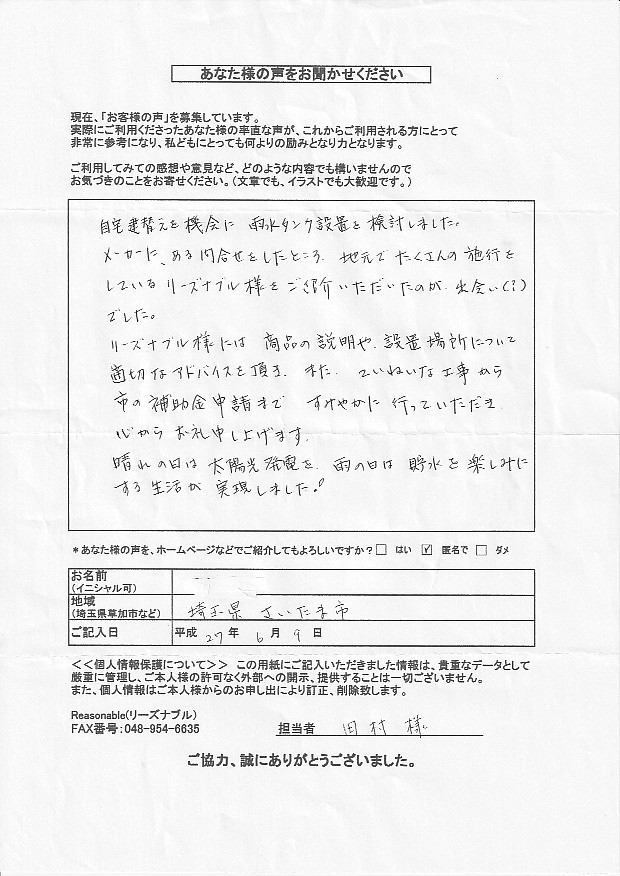 あなた様の声をお聞かせください
現在、「お客様の声」を募集しています。
実際にご利用くださったあなた様の率直な声が、これからご利用される方にとって
非常に参考になり、私どもにとっても何よりの励みとなり力となります。
ご利用してみての感想や意見など、どのような内容でも構いませんので
お気づきのことをお寄せください。(文章でも、イラストでも大歓迎です。)
自宅建替えを機会に 雨水タンク設置を検討しました。
メーカーに、ある問合せをしたところ、地元でたくさんの施行を
しているリーズナブル様をご紹介いただいたのが、出会い(!)
でした。
リーズナブル様には 商品の説明や、設置場所について
適切なアドバイスを頂き、また、ていねいな工事から
市の補助金申請まで すみやかに行っていただき
心からお礼申し上げます。
晴れの日は 太陽光発電を、雨の日は 貯水を楽しみに
する生活が 実現しました!
*あなた様の声を、ホームページなどでご紹介してもよろしいですか?□ はい ☑ 匿名で □ ダメ
お名前
(イニシャル可)
地域
(埼玉県草加市など) 埼玉県 さいたま市
ご記入日 平成 27 年 6 月 9 日
<<個人情報保護について>> この用紙にご記入いただきました情報は、貴重なデータとして
厳重に管理し、ご本人様の許可なく外部への開示、提供することは一切ございません。
また、個人情報はご本人様からのお申し出により訂正、削除致します。
Reasonable(リーズナブル)
FAX番号:048-954-6635 担当者 田村 様
ご協力、誠にありがとうございました。